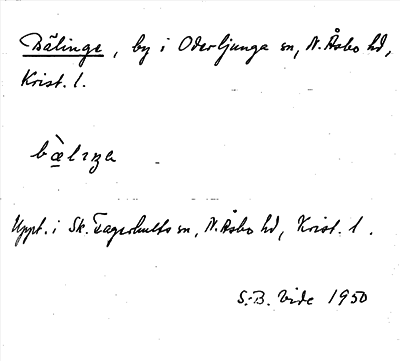 Bälinge, by i Oderljunga sn, N. Åsbo hd,
Krist. l.
bæ̀lıŋa
Uppt. i Sk. Fagerhults sn, N. Åsbo hd, Krist. l.
S.-B. Vide 1950